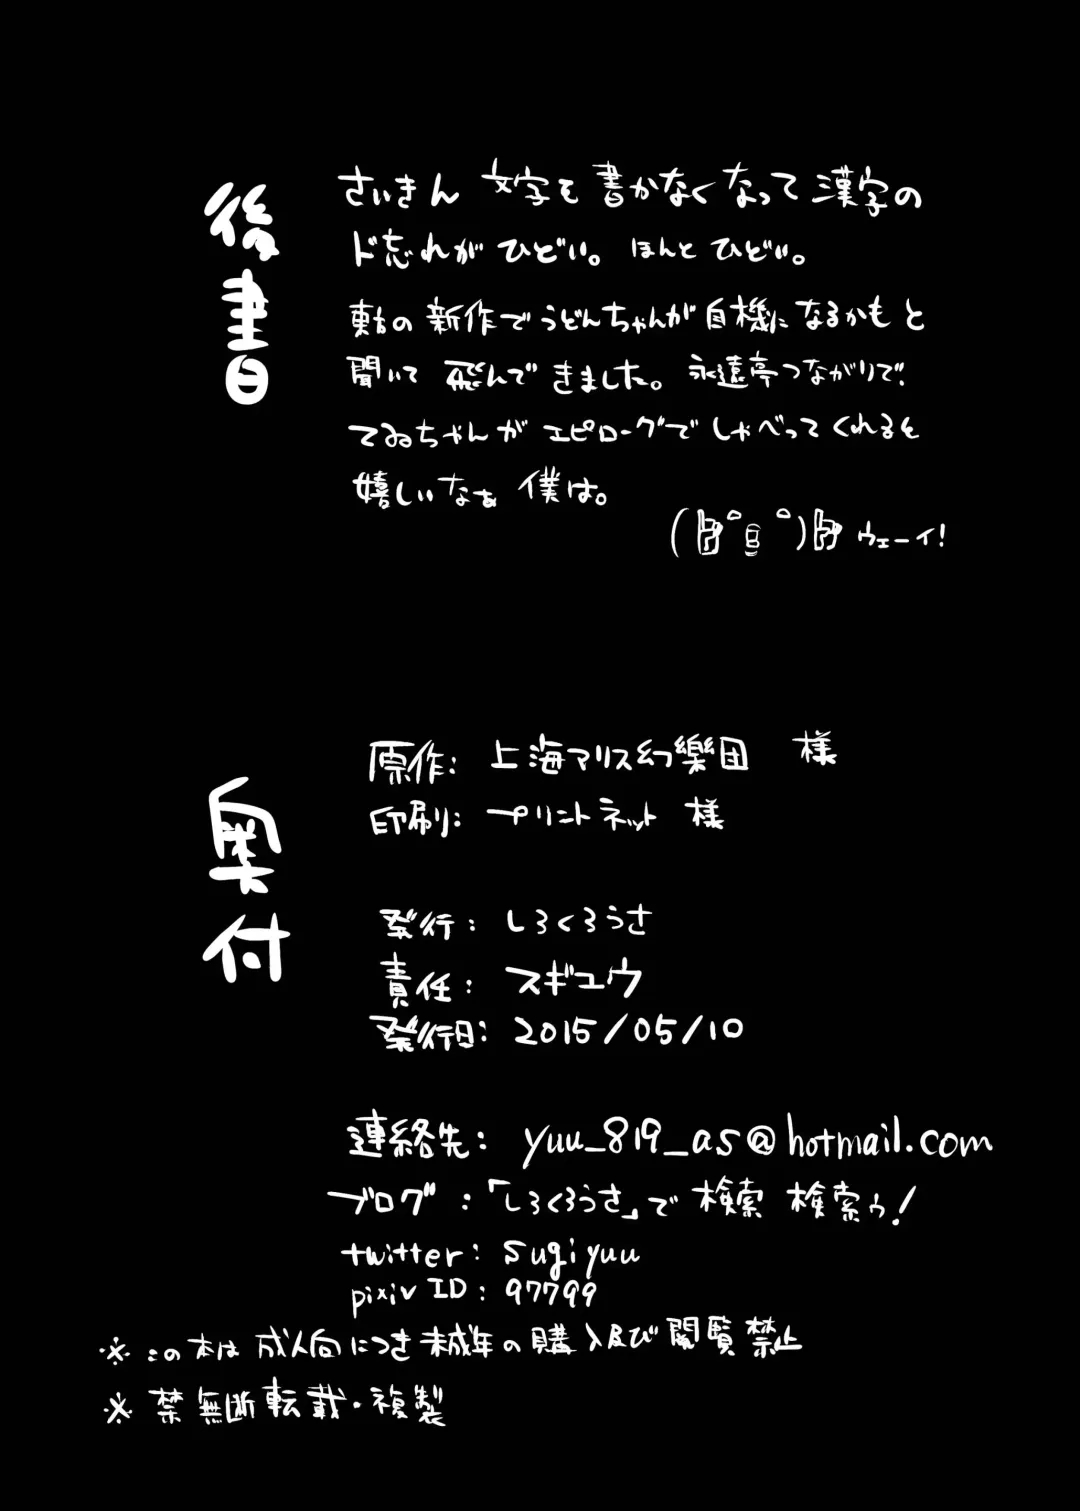 後書
さいきん 文字を書かなくなって漢字の
ド忘れがひどい。ほんとひどい。
東方の新作でうどんちゃんが自機になるかもと
聞いて飛んできました。永遠亭つながりで
てゐちゃんがエピローグでしゃべってくれると
嬉しいなぁ僕は。
ウェーイ!
奥付
原作: 上海アリス幻樂団 様
印刷: プリントネット 様
発行: しろくろうさ
責任: スギユウ
発行日: 2015/05/10
連絡先: yuu_819_as@hotmail.com
ブログ:「しろくろうさ」で検索 検索ゥ!
twitter: sugiyuu
pixiv ID: 97799
※この本は成人向につき未成年の購入及び閲覧禁止
※禁無断転載・複製